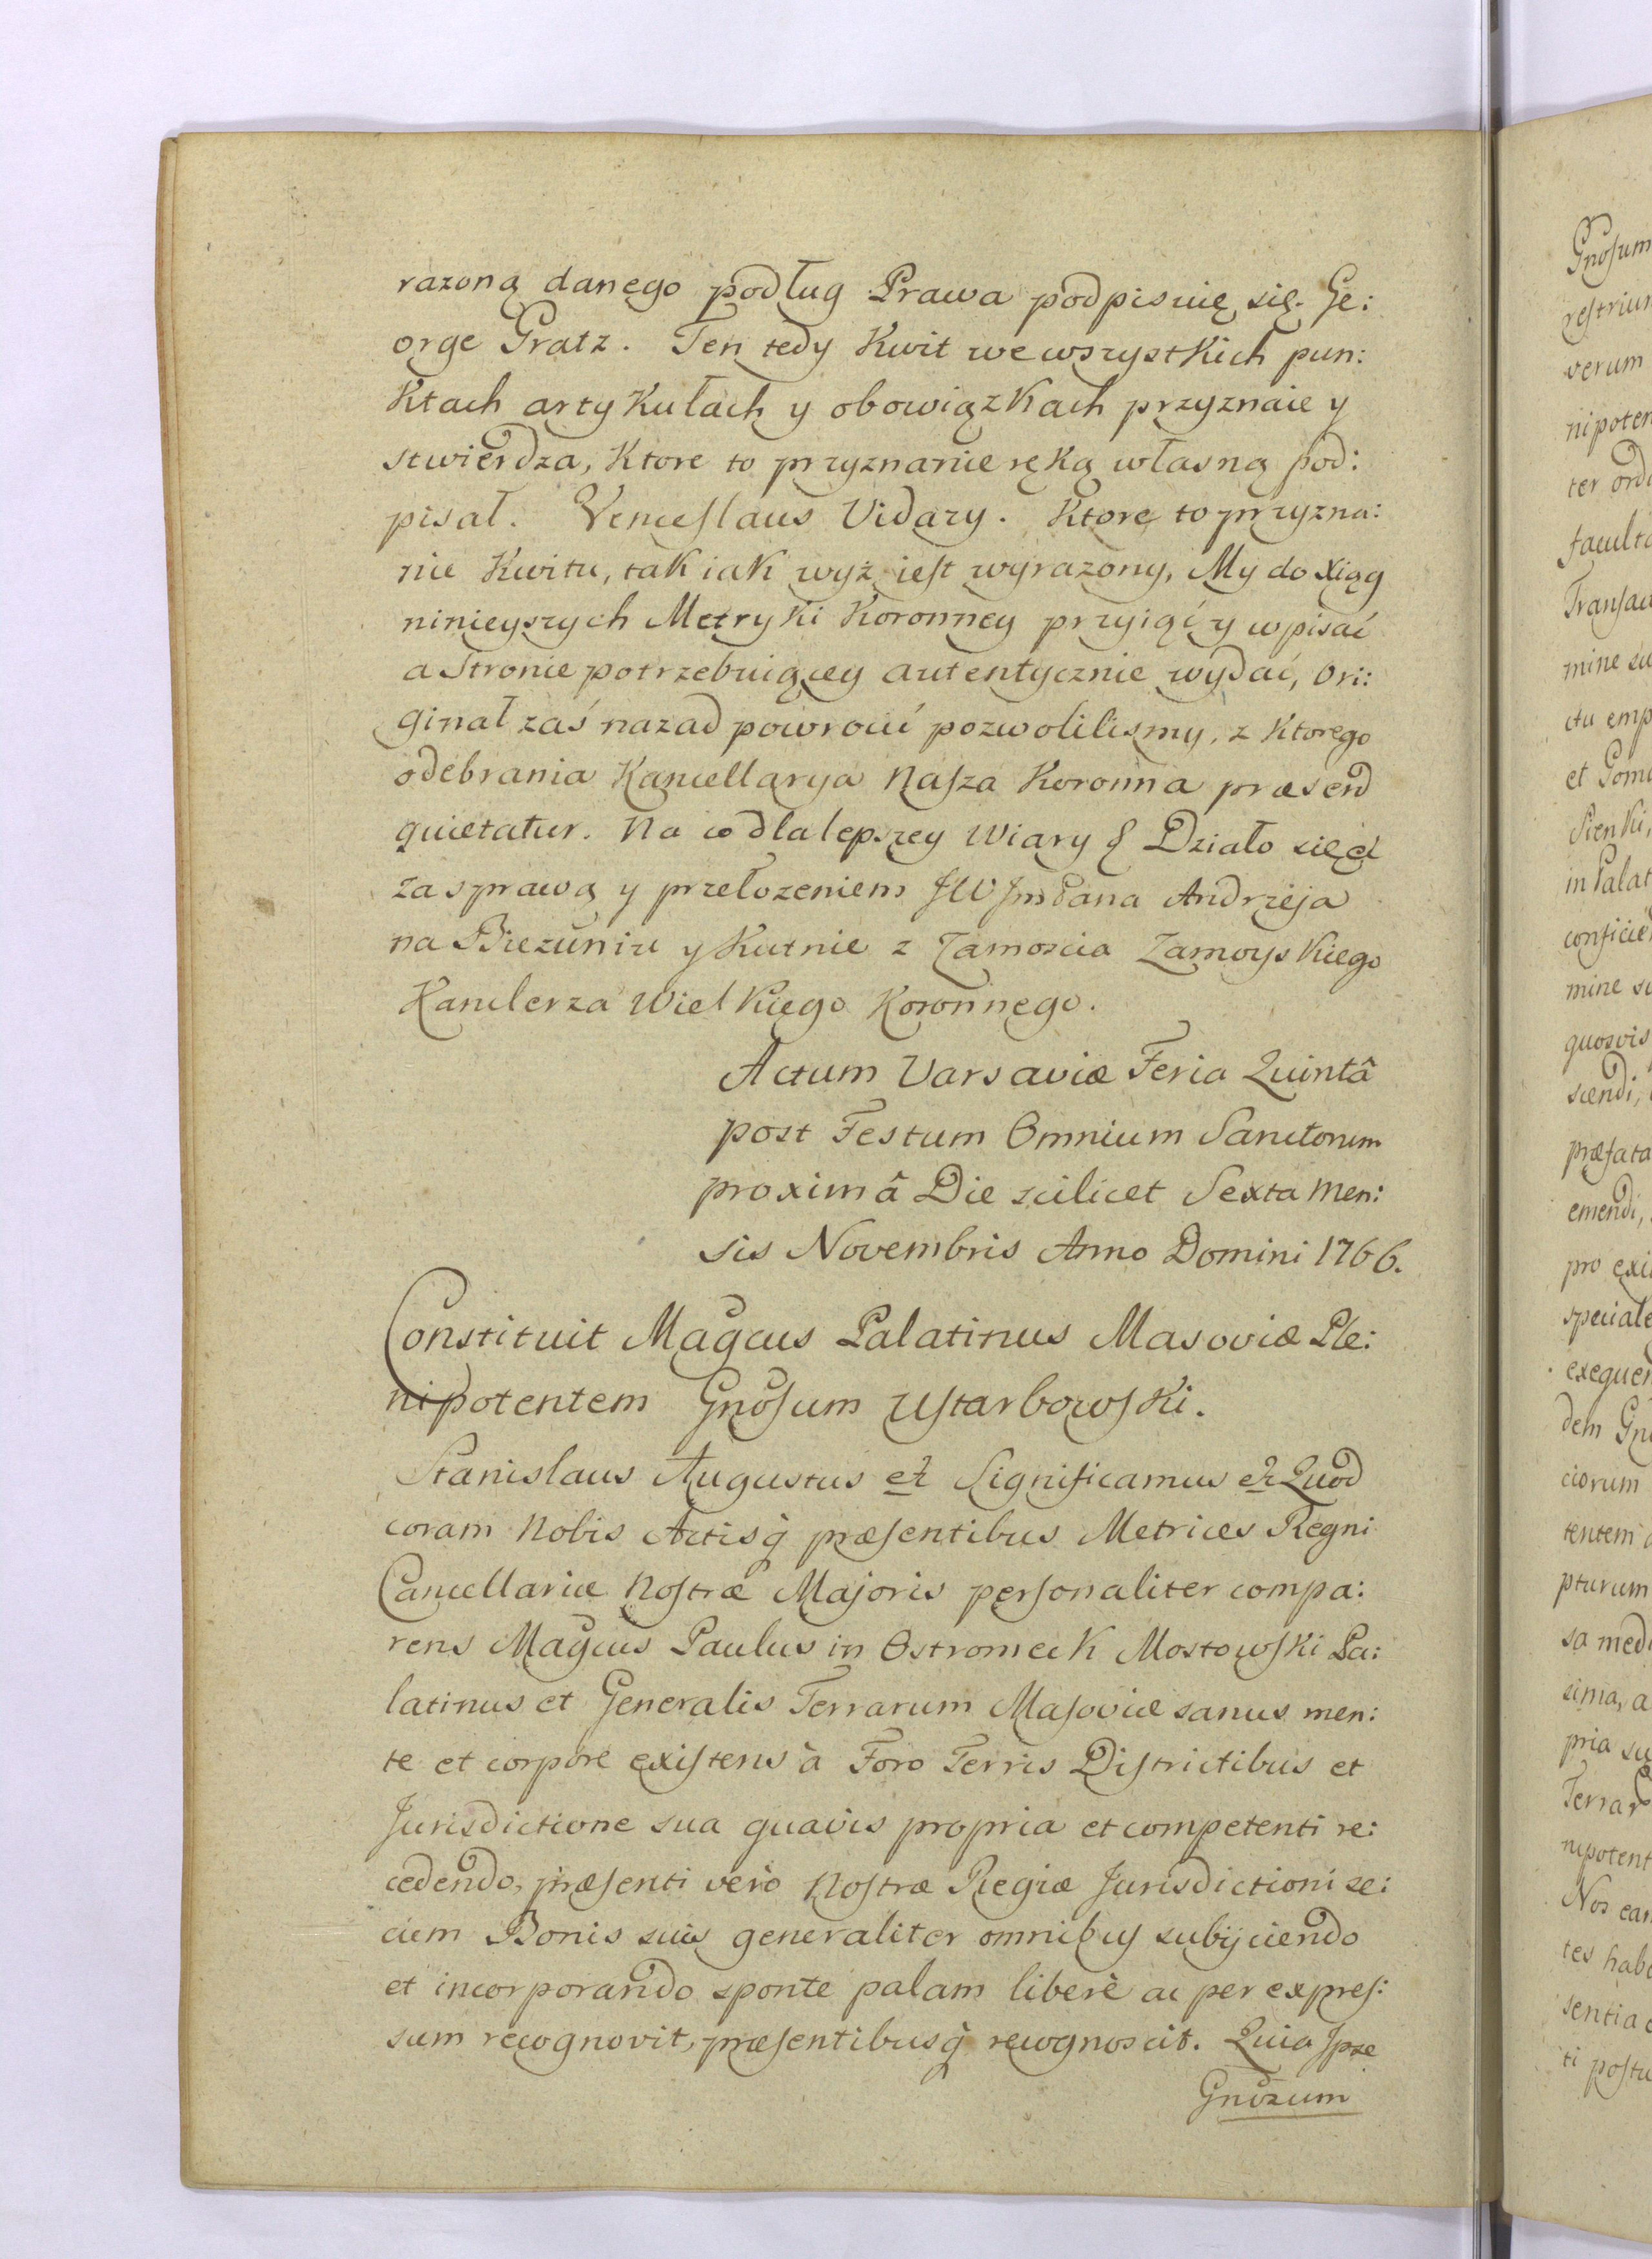 razoną danego podług Prawa podpisuię się. Ge:
orge Gratz. Ten tedy Kwit we wszystkich pun:
ktach artykułach y obowiązkach przyznaie y
stwierdza, Ktore to przyznanie ręką własną pod:
pisał. Venceslaus Vidazy. Ktore to przyzna:
nie Kwitu, tak iak wyż iest wyrazony, My do Xiąg
ninieyszych Metryki Koronney przyiąć y wpisać
a Stronie potrzebuiącey autentycznie wydać, Ori:
ginał zaś nazad powrocić pozwolilismy, z Ktorego
odebrania Kancellarya Nasza Koronna præsend
quietatur. Na co dla lepszey Wiary & Działo się et
za sprawą y przełozeniem JW Jm Pana Andrzeja
na Biezuniu y Kutnie z Zamoscia Zamoyskiego
Kanclerza Wielkiego Koronnego.
Actum Varsaviæ Feria Quintâ
post Festum Omnium Sanctorum
proximâ Die scilicet Sexta Men:
sis Novembris Anno Domini 1766.
Constituit Magcus Palatinus Masoviæ Ple:
nipotentem Gnosum Ustarbowski.
Stanislaus Augustus et Significamus et Quod
coram Nobis Actisq præsentibus Metrices Regni
Cancellariæ Nostræ Majoris personaliter compa:
rens Magcus Paulus in Ostromeck Mostowski Pa:
latinus et Generalis Terrarum Masoviæ sanus men:
te et corpore existens à Foro Terris Districtibus et
Jurisdictione sua quavis propria et competenti re:
cedendo, præsenti verò Nostræ Regiæ Jurisdictioni se:
cum Bonis suis generaliter omnibus subijciendo
et incorporando sponte palam liberè ac per expres:
sum recognovit, præsentibusq recognoscit. Quia Ipse
Gnosum
Gnosum
verum
et
mine
emendi,
quosvis
exequen
ciorum